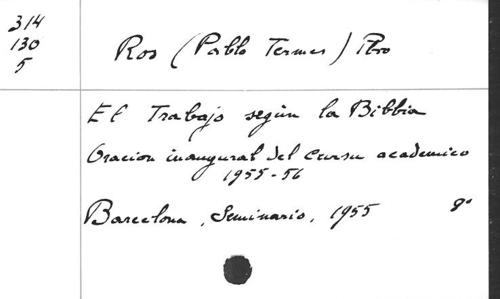 314
130
5
Ros (Pablo Termes) Pbro
El Trabajo según la Bibbia
Oracion inaugural del cursu academico
1955-56
Barcelona, Seminario, 1955 8°